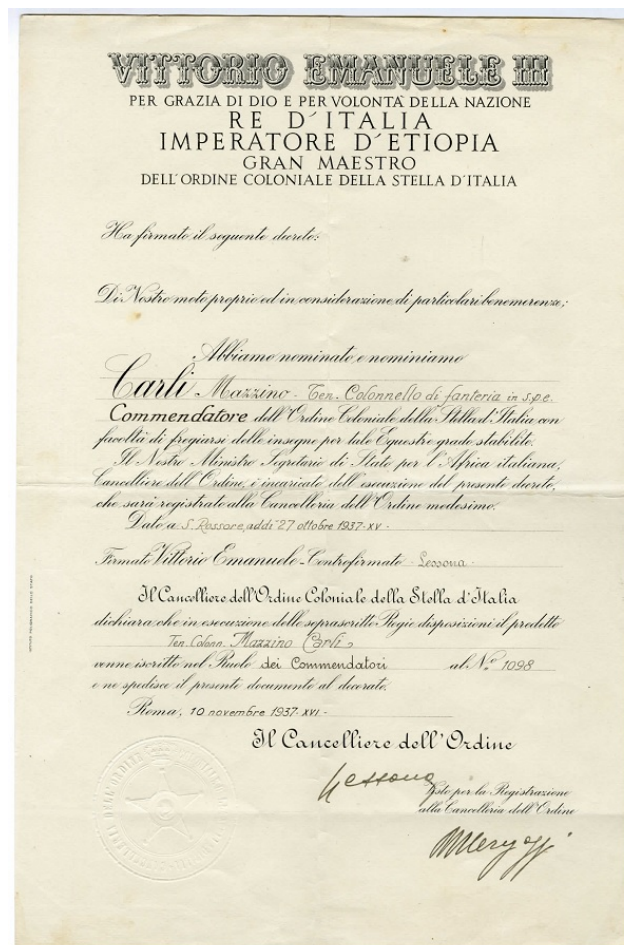 VITTORIO EMANUELE III
PER GRAZIA DI DIO E PER VOLONTÀ DELLA NAZIONE
RE D'ITALIA
IMPERATORE D'ETIOPIA
GRAN MAESTRO
DELL'ORDINE COLONIALE DELLA STELLA D'ITALIA
Ha firmato il seguente decreto:
Di Nostro moto proprio ed in considerazione di particolari benemerenze;
Abbiamo nominato e nominiamo
Carli Mazzino - Ten. Colonnello di fanteria in s.p.e.
Commendatore dell'Ordine Coloniale della Stella d'Italia con
facoltà di fregiarsi delle insegne per tale Equestre grado stabilite.
Il Nostro Ministro Segretario di Stato per l'Africa italiana,
Cancelliere dell'Ordine, è incaricato dell'esecuzione del presente decreto,
che sarà registrato alla Cancelleria dell'Ordine medesimo.
Dato a S. Rossore, addì 27 ottobre 1937-XV-
Firmato Vittorio Emanuele - Controfirmato - Lessona -
Il Cancelliere dell'Ordine Coloniale della Stella d'Italia
dichiara che in esecuzione delle soprascritte Regie disposizioni il predetto
Ten. Colonn. Mazzino Carli
venne iscritto nel Ruolo dei Commendatori al N.º 1098
e ne spedisce il presente documento al decorato.
Roma, 10 novembre 1937-XVI-
Il Cancelliere dell'Ordine
Lessona
Visto per la Registrazione
alla Cancelleria dell'Ordine